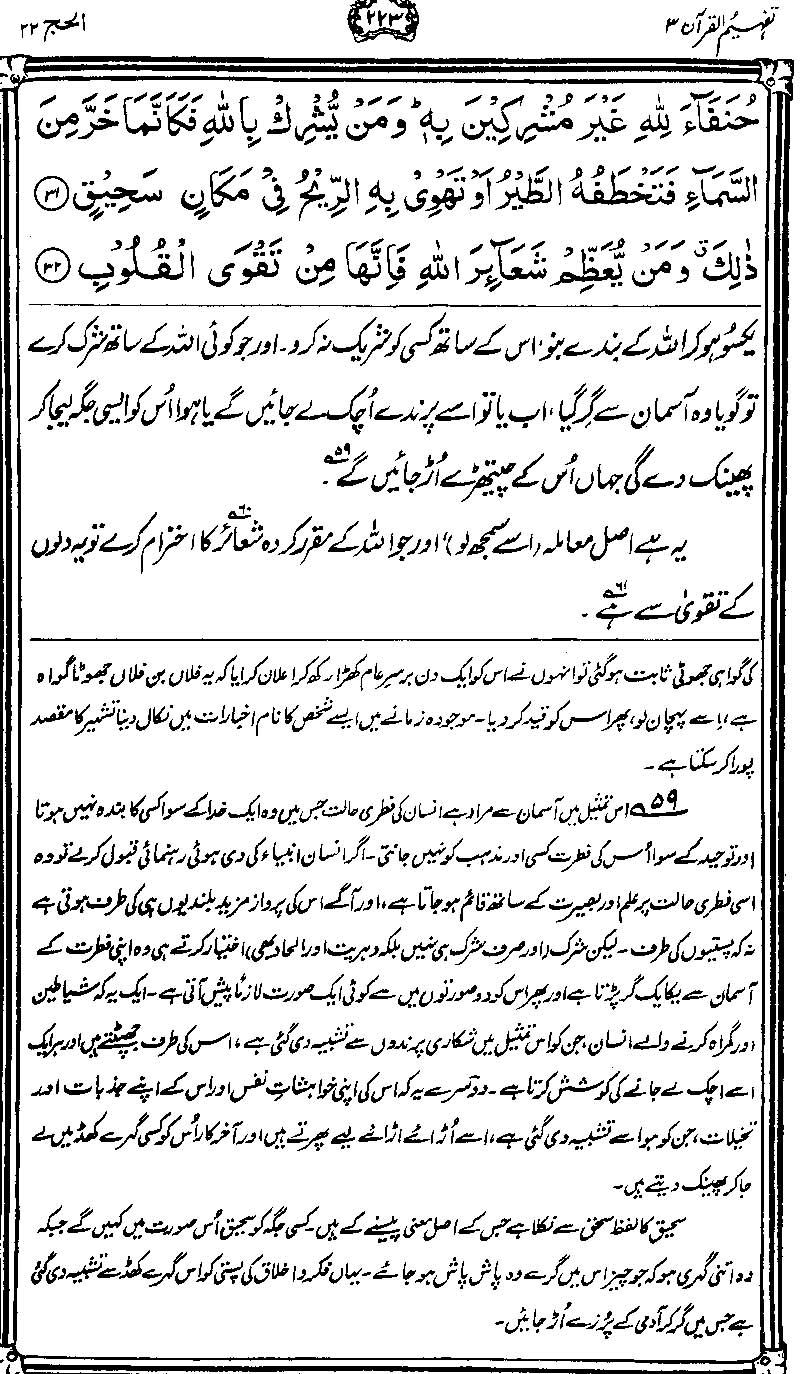 تفہیم القرآن ۳
۲۲۳
الحج ۲۲
حُنَفَآءَ لِلّٰهِ غَيْرَ مُشْرِكِيْنَ بِهٖ ؕ وَمَنْ يُّشْرِكْ بِاللّٰهِ فَكَاَنَّمَا خَرَّ مِنَ
السَّمَآءِ فَتَخْطَفُهُ الطَّيْرُ اَوْ تَهْوِىْ بِهِ الرِّيْحُ فِىْ مَكَانٍ سَحِيْقٍ ۳۱
ذٰلِكَ ۗ وَمَنْ يُّعَظِّمْ شَعَآئِرَ اللّٰهِ فَاِنَّهَا مِنْ تَقْوَى الْقُلُوْبِ ۳۲
یکسُو ہو کر اللہ کے بندے بنو، اس کے ساتھ کسی کو شریک نہ کرو۔ اور جو کوئی اللہ کے ساتھ شرک کرے
تو گویا وہ آسمان سے گر گیا، اب یا تو اسے پرندے اُچک لے جائیں گے یا ہوا اُس کو ایسی جگہ لیجا کر
پھینک دے گی جہاں اُس کے چیتھڑے اُڑ جائیں گے ۵۹۔
یہ ہے اصل معاملہ (اسے سمجھ لو)، اور جو اللہ کے مقرر کردہ شعائر ۶۰ کا احترام کرے تو یہ دلوں
کے تقویٰ سے ہے ۶۱۔
کی گواہی جھوٹی ثابت ہوگئی تو انہوں نے اس کو ایک دن برسرِ عام کھڑا رکھ کر اعلان کرایا کہ یہ فلاں بن فلاں جھوٹا گواہ
ہے، اسے پہچان لو، پھر اس کو قید کر دیا۔ موجودہ زمانے میں ایسے شخص کا نام اخبارات میں نکال دینا تشہیر کا مقصد
پورا کر سکتا ہے۔
۵۹ اس تمثیل میں آسمان سے مراد ہے انسان کی فطری حالت جس میں وہ ایک خدا کے سوا کسی کا بندہ نہیں ہوتا
اور توحید کے سوا اُس کی فطرت کسی اور مذہب کو نہیں جانتی۔ اگر انسان انبیاء کی دی ہوئی رہنمائی قبول کرلے تو وہ
اسی فطری حالت پر علم اور بصیرت کے ساتھ قائم ہو جاتا ہے، اور آگے اس کی پرواز مزید بلندیوں ہی کی طرف ہوتی ہے
نہ کہ پستیوں کی طرف۔ لیکن شرک (اور صرف شرک ہی نہیں بلکہ دہریت اور الحاد بھی) اختیار کرتے ہی وہ اپنی فطرت کے
آسمان سے یکایک گر پڑتا ہے اور پھر اس کو دو صورتوں میں سے کوئی ایک صورت لازماً پیش آتی ہے۔ ایک یہ کہ شیاطین
اور گمراہ کرنے والے انسان، جن کو اس تمثیل میں شکاری پرندوں سے تشبیہ دی گئی ہے، اس کی طرف جھپٹتے ہیں اور ہر ایک
اسے اچک لے جانے کی کوشش کرتا ہے۔ دوسرے یہ کہ اس کی اپنی خواہشاتِ نفس اور اس کے اپنے جذبات اور
تخیلات، جن کو ہوا سے تشبیہ دی گئی ہے، اسے اُڑائے اڑائے لیے پھرتے ہیں اور آخر کار اُس کو کسی گہرے کھڈ میں لے
جا کر پھینک دیتے ہیں۔
سحیق کا لفظ سحق سے نکلا ہے جس کے اصل معنی پیسنے کے ہیں۔ کسی جگہ کو سحیق اُس صورت میں کہیں گے جبکہ
وہ اتنی گہری ہو کہ جو چیز اس میں گرے وہ پاش پاش ہو جائے۔ یہاں فکر و اخلاق کی پستی کو اس گہرے کھڈ سے تشبیہ دی گئی
ہے جس میں گر کر آدمی کے پُرزے اُڑ جائیں۔